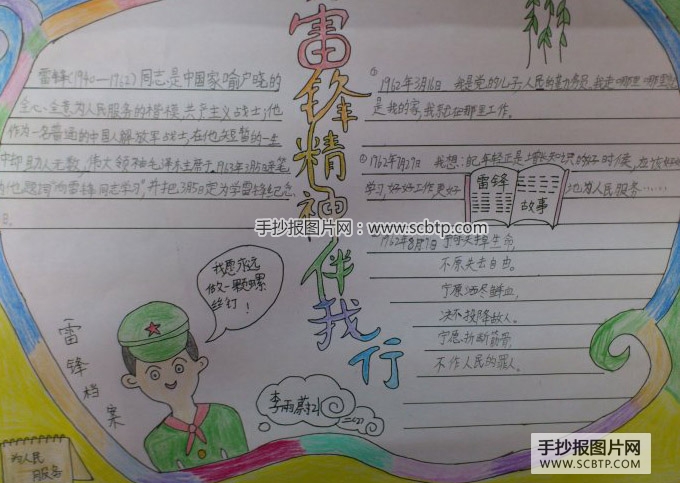 雷锋精神伴我行
雷锋(1940—1962)同志是中国家喻户晓的
全心全意为人民服务的楷模,共产主义战士;他
作为一名普通的中国人解放军战士,在他短暂的一生
中却助人无数,伟大领袖毛泽东主席于1963年3月5日亲笔
为他题词"向雷锋同志学习",并把3月5日定为学雷锋纪念
日。
我愿永远
做一颗螺
丝钉!
雷锋档案
为人民
服务
李雨蔚
①1962年3月16日 我是党的儿子,人民的勤务员,我走哪里哪里
是我的家,我就在那里工作。
②1962年7月27日 我想:现年轻正是增长知识的好时候,应该好好
学习,好好工作,更好地为人民服务……
雷锋
故事
1962年8月7日 宁可失掉生命,
不原失去自由。
宁原洒尽鲜血,
决不投降敌人。
宁愿折断筋骨,
不作人民的罪人。
手抄报图片网:www.scbtp.com
手抄报图片网
WWW.SCBTP.COM